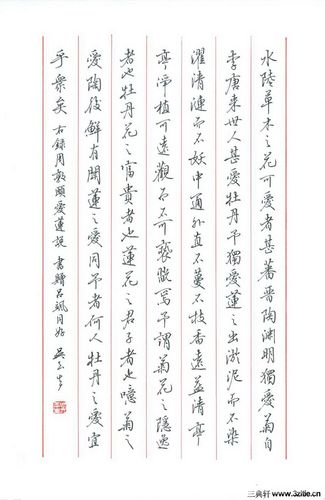 水陸草木之花可愛者甚蕃晉陶渊明獨愛菊自
李唐来世人甚愛牡丹予獨愛蓮之出淤泥而不染
濯清漣而不妖中通外直不蔓不枝香遠益清亭
亭淨植可遠觀而不可褻翫焉予謂菊花之隱逸
者也牡丹花之富貴者也蓮花之君子者也噫菊之
愛陶後鮮有聞蓮之愛同予者何人牡丹之愛宜
乎衆矣 右録周敦頤愛蓮説 書贈吕颯同好 吴玉生
三典轩 www.3zitie.cn